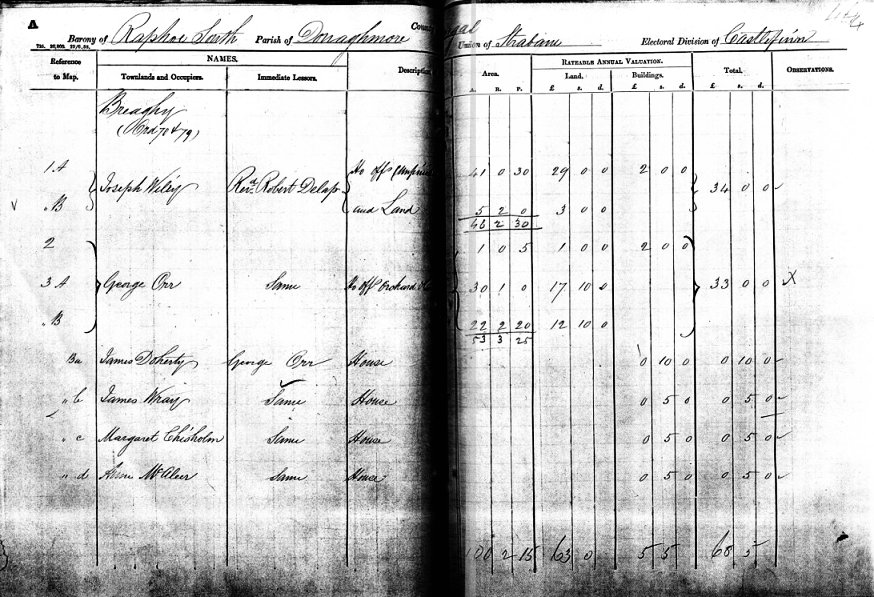 A
Barony of Raphoe South Parish of Donaghmore Coun gal Union of Strabane Electoral Division of Castlefinn
Reference to Map. NAMES. Description Area. RATEABLE ANNUAL VALUATION. OBSERVATIONS.
Townlands and Occupiers. Immediate Lessors. Land. Buildings. Total.
A. R. P. £ s. d. £ s. d. £ s. d.
Breaghy
(Ord 70 & 79)
1 A Ho offs 41 0 30 29 0 0 2 0 0
Joseph Wiley Revd. Robert Delap 34 0 0
" B and Land 5 2 0 3 0 0
46 2 30
2 1 0 5 1 0 0 2 0 0
3 A George Orr Same Ho offs Orchard 30 1 0 17 10 0 33 0 0 X
" B 22 2 20 12 10 0
53 3 25
3a James Doherty George Orr House 0 10 0 0 10 0
" b James Wray Same House 0 5 0 0 5 0
" c Margaret Chisholm Same House 0 5 0 0 5 0
" d McAleer Same House 0 5 0 0 5 0
100 2 15 63 0 5 5 68 5